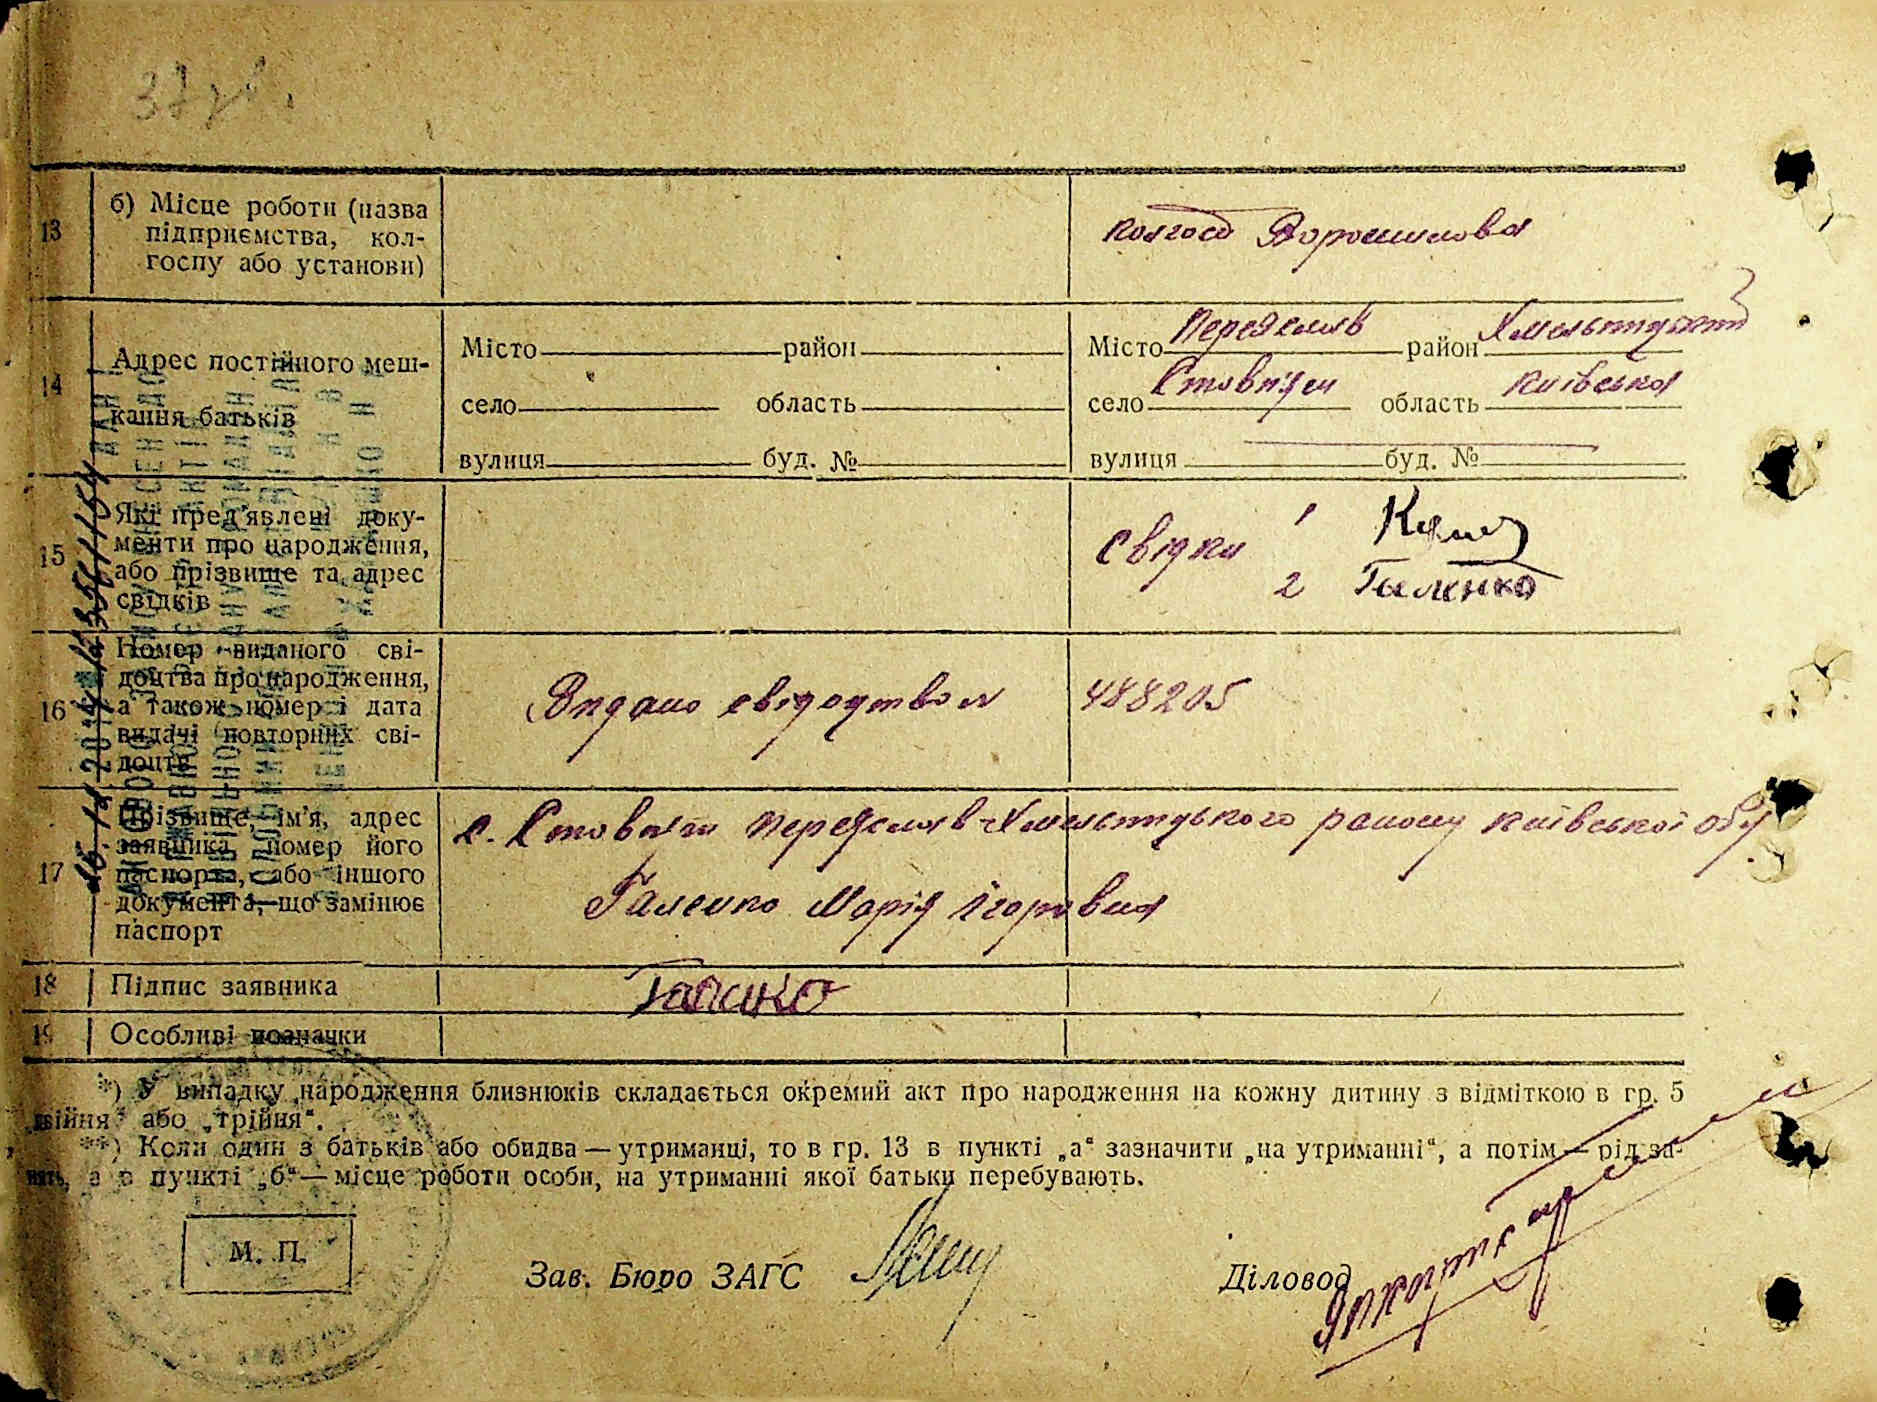 13 б) Місце роботи (назва
підприємства, кол-
госпу або установи)
колгосп Ворошилова
14 Адрес постійного меш-
кання батьків
Місто район Місто Переяслав район Хмельницький
село область село Стовпяги область Київська
вулиця буд. № вулиця буд. №
15 Які пред'явлені доку-
менти про народження,
або прізвище та адрес
свідків
Свідки 1
2 Галенко
16 Номер виданого сві-
доцтва про народження,
а також номер і дата
видачі повторних сві-
доцтв
Видано свідоцтво 488205
17 Прізвище, ім'я, адрес
заявника, номер його
паспорта, або іншого
документа, що замінює
паспорт
с. Стовпяги Переяслав-Хмельницького району Київської обл
Галенко Марія Ігоровна
18 Підпис заявника Галенко
19 Особливі позначки
*) У випадку народження близнюків складається окремий акт про народження на кожну дитину з відміткою в гр. 5
„двійня" або „трійня".
**) Коли один з батьків або обидва — утриманці, то в гр. 13 в пункті „а" зазначити „на утриманні", а потім — рід за-
нять, а в пункті „б" — місце роботи особи, на утриманні якої батьки перебувають.
М. П.
Зав. Бюро ЗАГС Діловод